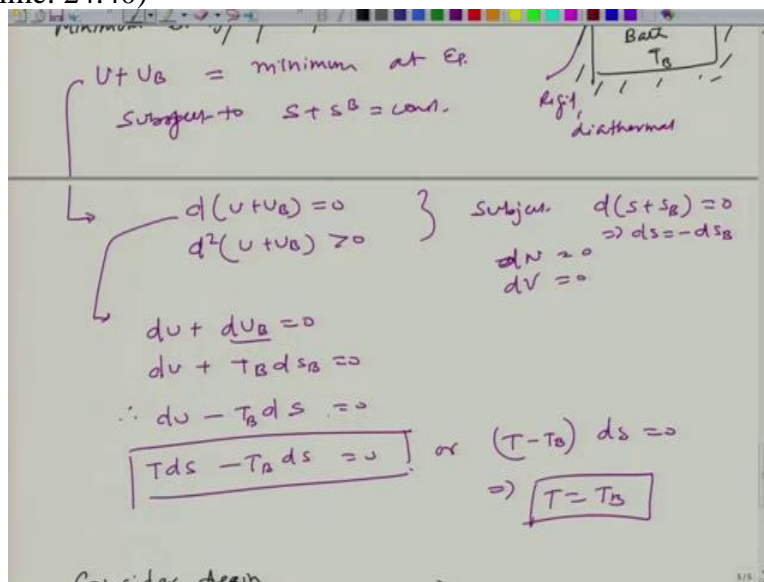 U+UB = minimum at Eq.
Subject to S+SB = const.
Bath
TB
Rigid,
diathermal
d(U+UB) = 0
d²(U+UB) > 0
} Subject. d(S+SB) = 0
=> ds = -dSB
dN = 0
dV = 0
dU + dUB = 0
dU + TB dSB = 0
∴ dU - TB dS = 0
TdS - TB dS = 0 or (T-TB) dS = 0
=> T = TB
Consider again
5/5